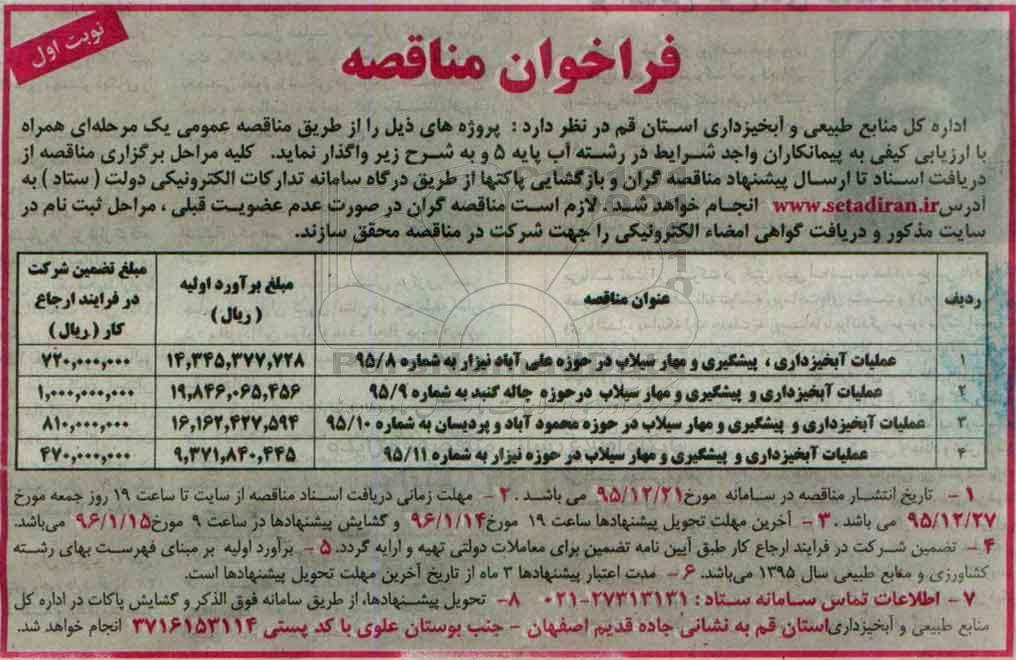 نوبت اول
فراخوان مناقصه
اداره کل منابع طبیعی و آبخیزداری استان قم در نظر دارد : پروژه های ذیل را از طریق مناقصه عمومی یک مرحله‌ای همراه
با ارزیابی کیفی به پیمانکاران واجد شرایط در رشته آب پایه ۵ و به شرح زیر واگذار نماید. کلیه مراحل برگزاری مناقصه از
دریافت اسناد تا ارسال پیشنهاد مناقصه گران و بازگشایی پاکتها از طریق درگاه سامانه تدارکات الکترونیکی دولت ( ستاد ) به
آدرس www.setadiran.ir انجام خواهد شد . لازم است مناقصه گران در صورت عدم عضویت قبلی ، مراحل ثبت نام در
سایت مذکور و دریافت گواهی امضاء الکترونیکی را جهت شرکت در مناقصه محقق سازند.
ردیف عنوان مناقصه مبلغ برآورد اولیه ( ریال ) مبلغ تضمین شرکت در فرایند ارجاع کار ( ریال )
۱ عملیات آبخیزداری ، پیشگیری و مهار سیلاب در حوزه علی آباد نیزار به شماره ۹۵/۸ ۱۴,۳۴۵,۳۷۷,۷۲۸ ۷۲۰,۰۰۰,۰۰۰
۲ عملیات آبخیزداری و پیشگیری و مهار سیلاب درحوزه چاله گنبد به شماره ۹۵/۹ ۱۹,۸۴۶,۰۶۵,۴۵۶ ۱,۰۰۰,۰۰۰,۰۰۰
۳ عملیات آبخیزداری و پیشگیری و مهار سیلاب در حوزه محمود آباد و پردیسان به شماره ۹۵/۱۰ ۱۶,۱۶۲,۴۲۷,۵۹۴ ۸۱۰,۰۰۰,۰۰۰
۴ عملیات آبخیزداری و پیشگیری و مهار سیلاب در حوزه نیزار به شماره ۹۵/۱۱ ۹,۳۷۱,۸۴۰,۴۴۵ ۴۷۰,۰۰۰,۰۰۰
۱ – تاریخ انتشار مناقصه در سامانه مورخ ۹۵/۱۲/۲۱ می باشد . ۲ – مهلت زمانی دریافت اسناد مناقصه از سایت تا ساعت ۱۹ روز جمعه مورخ
۹۵/۱۲/۲۷ می باشد . ۳ – آخرین مهلت تحویل پیشنهادها ساعت ۱۹ مورخ ۹۶/۱/۱۴ و گشایش پیشنهادها در ساعت ۹ مورخ ۹۶/۱/۱۵ می‌باشد.
۴ – تضمین شرکت در فرایند ارجاع کار طبق آیین نامه تضمین برای معاملات دولتی تهیه و ارایه گردد. ۵ – برآورد اولیه بر مبنای فهرست بهای رشته
کشاورزی و منابع طبیعی سال ۱۳۹۵ می‌باشد. ۶ – مدت اعتبار پیشنهادها ۳ ماه از تاریخ آخرین مهلت تحویل پیشنهادها است.
۷ – اطلاعات تماس سامانه ستاد : ۲۷۳۱۳۱۳۱-۰۲۱ ۸– تحویل پیشنهادها، از طریق سامانه فوق الذکر و گشایش پاکات در اداره کل
منابع طبیعی و آبخیزداری استان قم به نشانی جاده قدیم اصفهان – جنب بوستان علوی با کد پستی ۳۷۱۶۱۵۳۱۱۴ انجام خواهد شد.